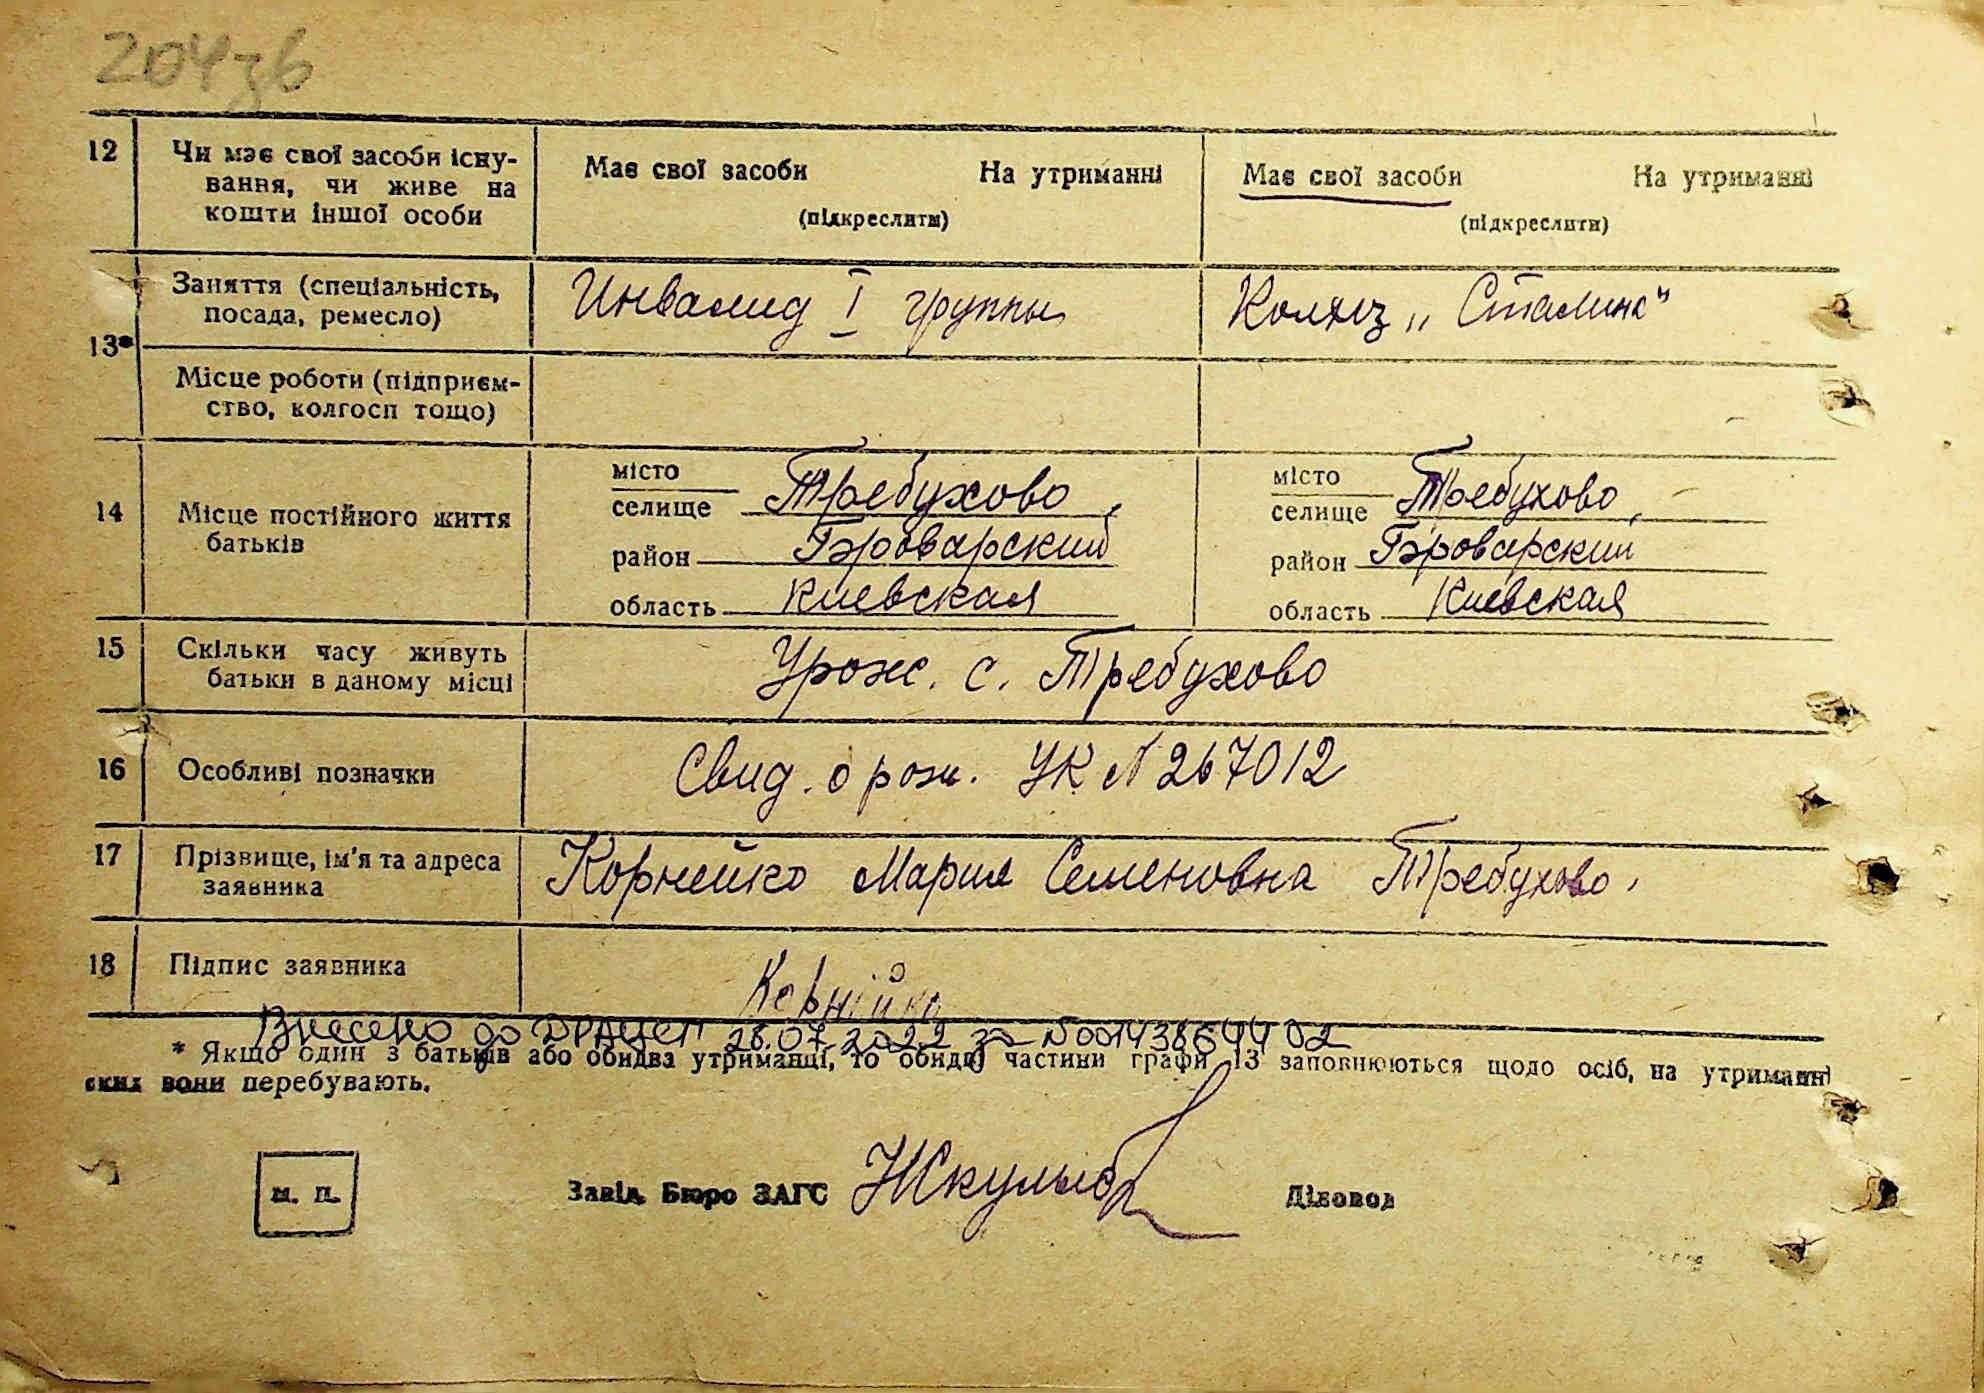 204зв
12 Чи має свої засоби існу-
вання, чи живе на
кошти іншої особи
Має свої засоби На утриманні
(підкреслити)
Має свої засоби На утриманні
(підкреслити)
13*
Заняття (спеціальність,
посада, ремесло)
Инвалид I группы
Колхоз „Сталина"
Місце роботи (підприєм-
ство, колгосп тощо)
14 Місце постійного життя
батьків
місто
селище Требухово,
район Броварский
область Киевская
місто
селище Требухово,
район Броварский
область Киевская
15 Скільки часу живуть
батьки в даному місці
Урож. с. Требухово
16 Особливі позначки
Свид. о рож. УК № 267012
17 Прізвище, ім'я та адреса
заявника
Корнейко Мария Семеновна Требухово.
18 Підпис заявника
Корнійко
Внесено до ДРАЦСГ 28.07.2022 за №00143864402
* Якщо один з батьків або обидва утриманці, то обидві частини графи 13 заповнюються щодо осіб, на утриманні
яких вони перебувають.
м. п.
Завід. Бюро ЗАГС
Діловод